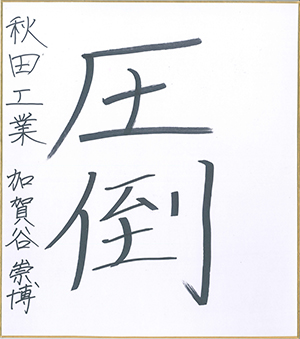 圧倒
秋田工業 加賀谷 崇博